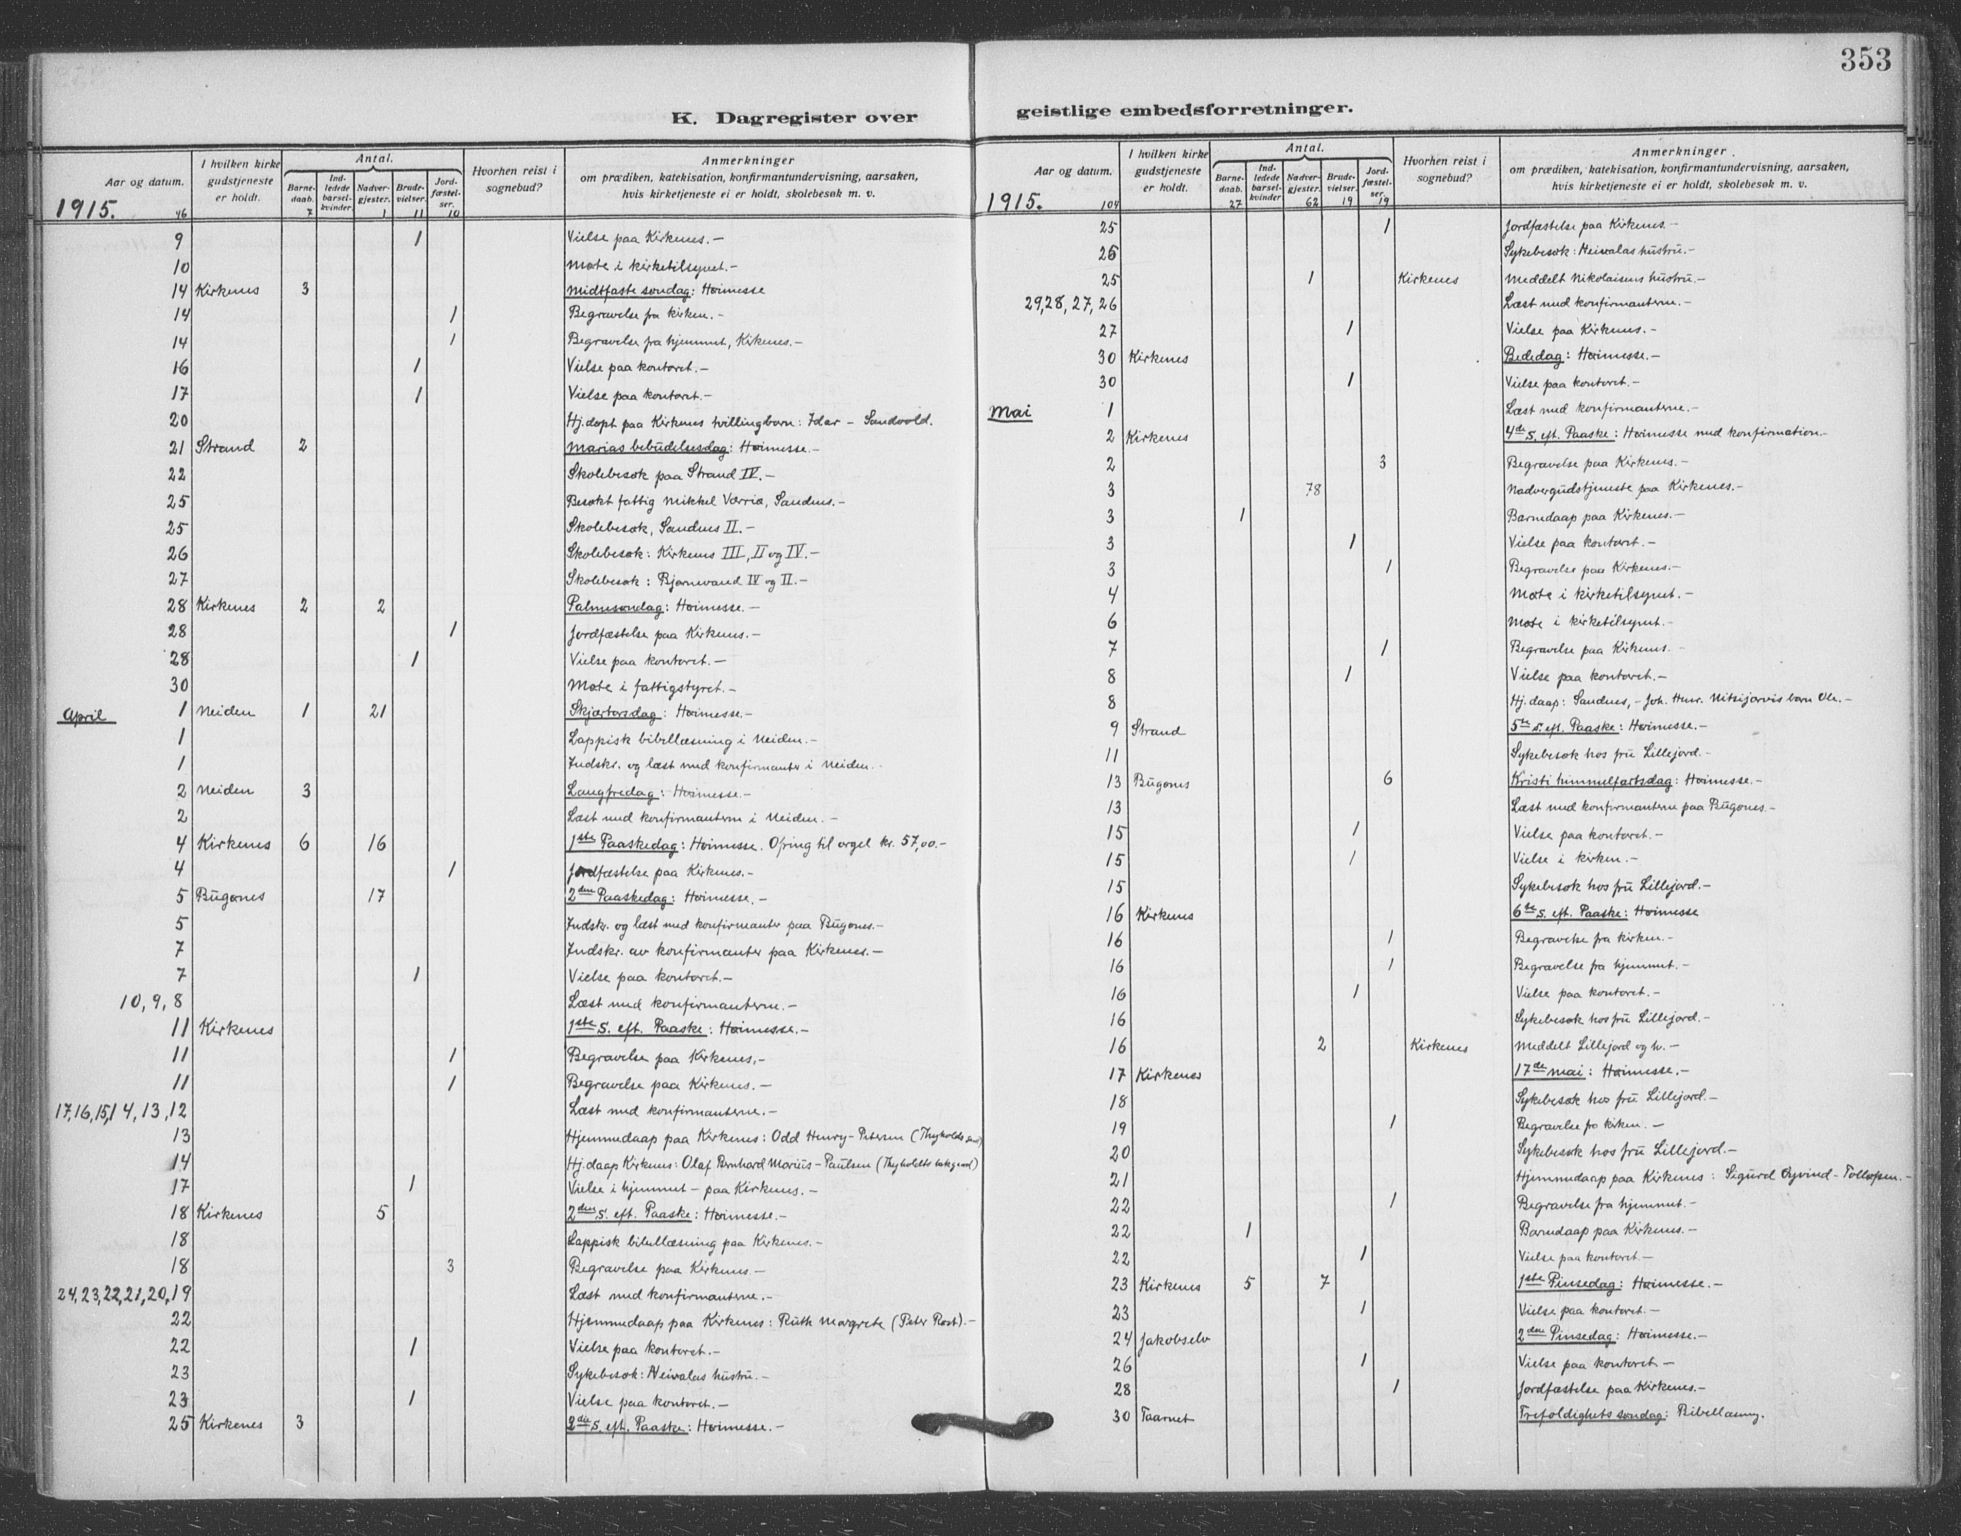 353
K. Dagregister over geistlige embedsforretninger.
Aar og datum.
I hvilken kirke gudstjeneste er holdt.
Antal.
Barne-daab.
Ind-ledede barsel-kvinder
Nadver-gjester.
Brude-vielser.
Jord-fæstel-ser.
Hvorhen reist i sognebud?
Anmerkninger
om prædiken, katekisation, konfirmantundervisning, aarsaken, hvis kirketjeneste ei er holdt, skolebesøk m. v.
1915. 46 7 1 11 10
9 1 Vielse paa Kirkenes.–
10 Møte i kirketilsynet.–
14 Kirkenes 3 Midtfaste søndag: Høimesse
14 1 Begravelse fra kirken.–
14 1 Begravelse fra hjemmet, Kirkenes.–
16 1 Vielse paa kontoret.–
17 1 Vielse paa kontoret.–
20 Hj.døpt paa Kirkenes tvillingbarn: Idar – Sandvold.
21 Strand 2 Marias bebudelsesdag: Høimesse.–
22 Skolebesøk paa Strand IV.–
25 Besøkt fattig Mikkel Værriø, Sandnes.–
25 Skolebesøk, Sandnes II.–
26 Skolebesøk: Kirkenes III, II og IV.–
27 Skolebesøk: Bjørnevand IV og II.–
28 Kirkenes 2 2 Palmesøndag: Høimesse.–
28 1 Jordfæstelse paa Kirkenes.–
28 1 Vielse paa kontoret.–
30 Møte i fattigstyret.–
April 1 Neiden 1 21 Skjærtorsdag: Høimesse.–
1 Lappisk bibellæsning i Neiden.–
1 Indskr. og læst med konfirmanter i Neiden.–
2 Neiden 3 Langfredag: Høimesse.–
2 Læst med konfirmanterne i Neiden.–
4 Kirkenes 6 16 1ste Paaskedag: Høimesse. Ofring til orgel kr. 57,00.–
4 1 Jordfæstelse paa Kirkenes.–
5 Bugønes 17 2den Paaskedag: Høimesse.–
5 Indskr. og læst med konfirmanter paa Bugønes.–
7 Indskr. av konfirmanter paa Kirkenes.–
7 1 Vielse paa kontoret.–
10, 9, 8 Læst med konfirmanterne.–
11 Kirkenes 1ste S. eft. Paaske: Høimesse.–
11 1 Begravelse paa Kirkenes.–
11 1 Begravelse paa Kirkenes.–
17, 16, 15, 14, 13, 12 Læst med konfirmanterne.–
13 Hjemmedaap paa Kirkenes: Odd Henry – Petersen
14 Hj.daap Kirkenes: Olaf Bernhard Marius – Paulsen
17 1 Vielse i hjemmet – paa Kirkenes.–
18 Kirkenes 5 2den S. eft. Paaske: Høimesse.–
18 Lappisk bibellæsning paa Kirkenes.–
18 3 Begravelse paa Kirkenes.–
24, 23, 22, 21, 20, 19 Læst med konfirmanterne.–
22 Hjemmedaap paa Kirkenes: Ruth Margrete (Peter Rost).–
22 1 Vielse paa kontoret.–
23 Sykebesøk: Neiwalas hustru.–
23 1 Vielse paa kontoret.–
25 Kirkenes 3 3die S. eft. Paaske: Høimesse.–
Aar og datum.
I hvilken kirke gudstjeneste er holdt.
Antal.
Barne-daab.
Ind-ledede barsel-kvinder
Nadver-gjester.
Brude-vielser.
Jord-fæstel-ser.
Hvorhen reist i sognebud?
Anmerkninger.
om prædiken, katekisation, konfirmantundervisning, aarsaken, hvis kirketjeneste ei er holdt, skolebesøk m. v.
1915. 104 27 62 19 19
25 1 Jordfæstelse paa Kirkenes.–
26 Sykebesøk: Neiwalas hustru.–
25 1 Kirkenes Meddelt Nikolaisens hustru.–
29, 28, 27, 26 Læst med konfirmanterne.–
27 1 Vielse paa Kirkenes.–
30 Kirkenes Bededag: Høimesse.–
30 1 Vielse paa kontoret.–
Mai 1 Læst med konfirmanterne.–
2 Kirkenes 4de S. eft. Paaske: Høimesse med konfirmation.–
2 3 Begravelse paa Kirkenes.–
3 78 Nadvergudstjeneste paa Kirkenes.–
3 1 Barnedaap paa Kirkenes.–
3 1 Vielse paa kontoret.–
3 1 Begravelse paa Kirkenes.–
4 Møte i kirketilsynet.–
6 Møte i kirketilsynet.–
7 1 Begravelse paa Kirkenes.–
8 1 Vielse paa kontoret.–
8 Hj.daap: Sandnes, – Joh. Henr. barn Ole.–
9 Strand 5te S. eft. Paaske: Høimesse.–
11 Sykebesøk hos fru Lillejord.–
13 Bugønes 6 Kristi himmelfartsdag: Høimesse.–
13 Læst med konfirmanterne paa Bugønes.–
15 1 Vielse paa kontoret.–
15 1 Vielse i kirken.–
15 Sykebesøk hos fru Lillejord.–
16 Kirkenes 6te S. eft. Paaske: Høimesse
16 1 Begravelse fra kirken.–
16 1 Begravelse fra hjemmet.–
16 1 Vielse paa kontoret.–
16 Sykebesøk hos fru Lillejord.–
16 2 Kirkenes Meddelt Lillejord og h.–
17 Kirkenes 17de mai: Høimesse.–
18 Sykebesøk hos fru Lillejord.–
19 1 Begravelse fra kirken.–
20 Sykebesøk hos fru Lillejord.–
21 Hjemmedaap paa Kirkenes: Sigurd Øyvind – Tollefsen.–
22 1 Begravelse fra hjemmet.–
22 1 Barnedaap paa Kirkenes.–
22 1 Vielse paa kontoret.–
23 Kirkenes 5 7 1ste Pinsedag: Høimesse.–
23 1 Vielse paa kontoret.–
24 Jakobselv 2den Pinsedag: Høimesse.–
26 1 Vielse paa kontoret.–
28 1 Jordfæstelse paa Kirkenes.–
30 Taarnet Trefoldighets søndag: